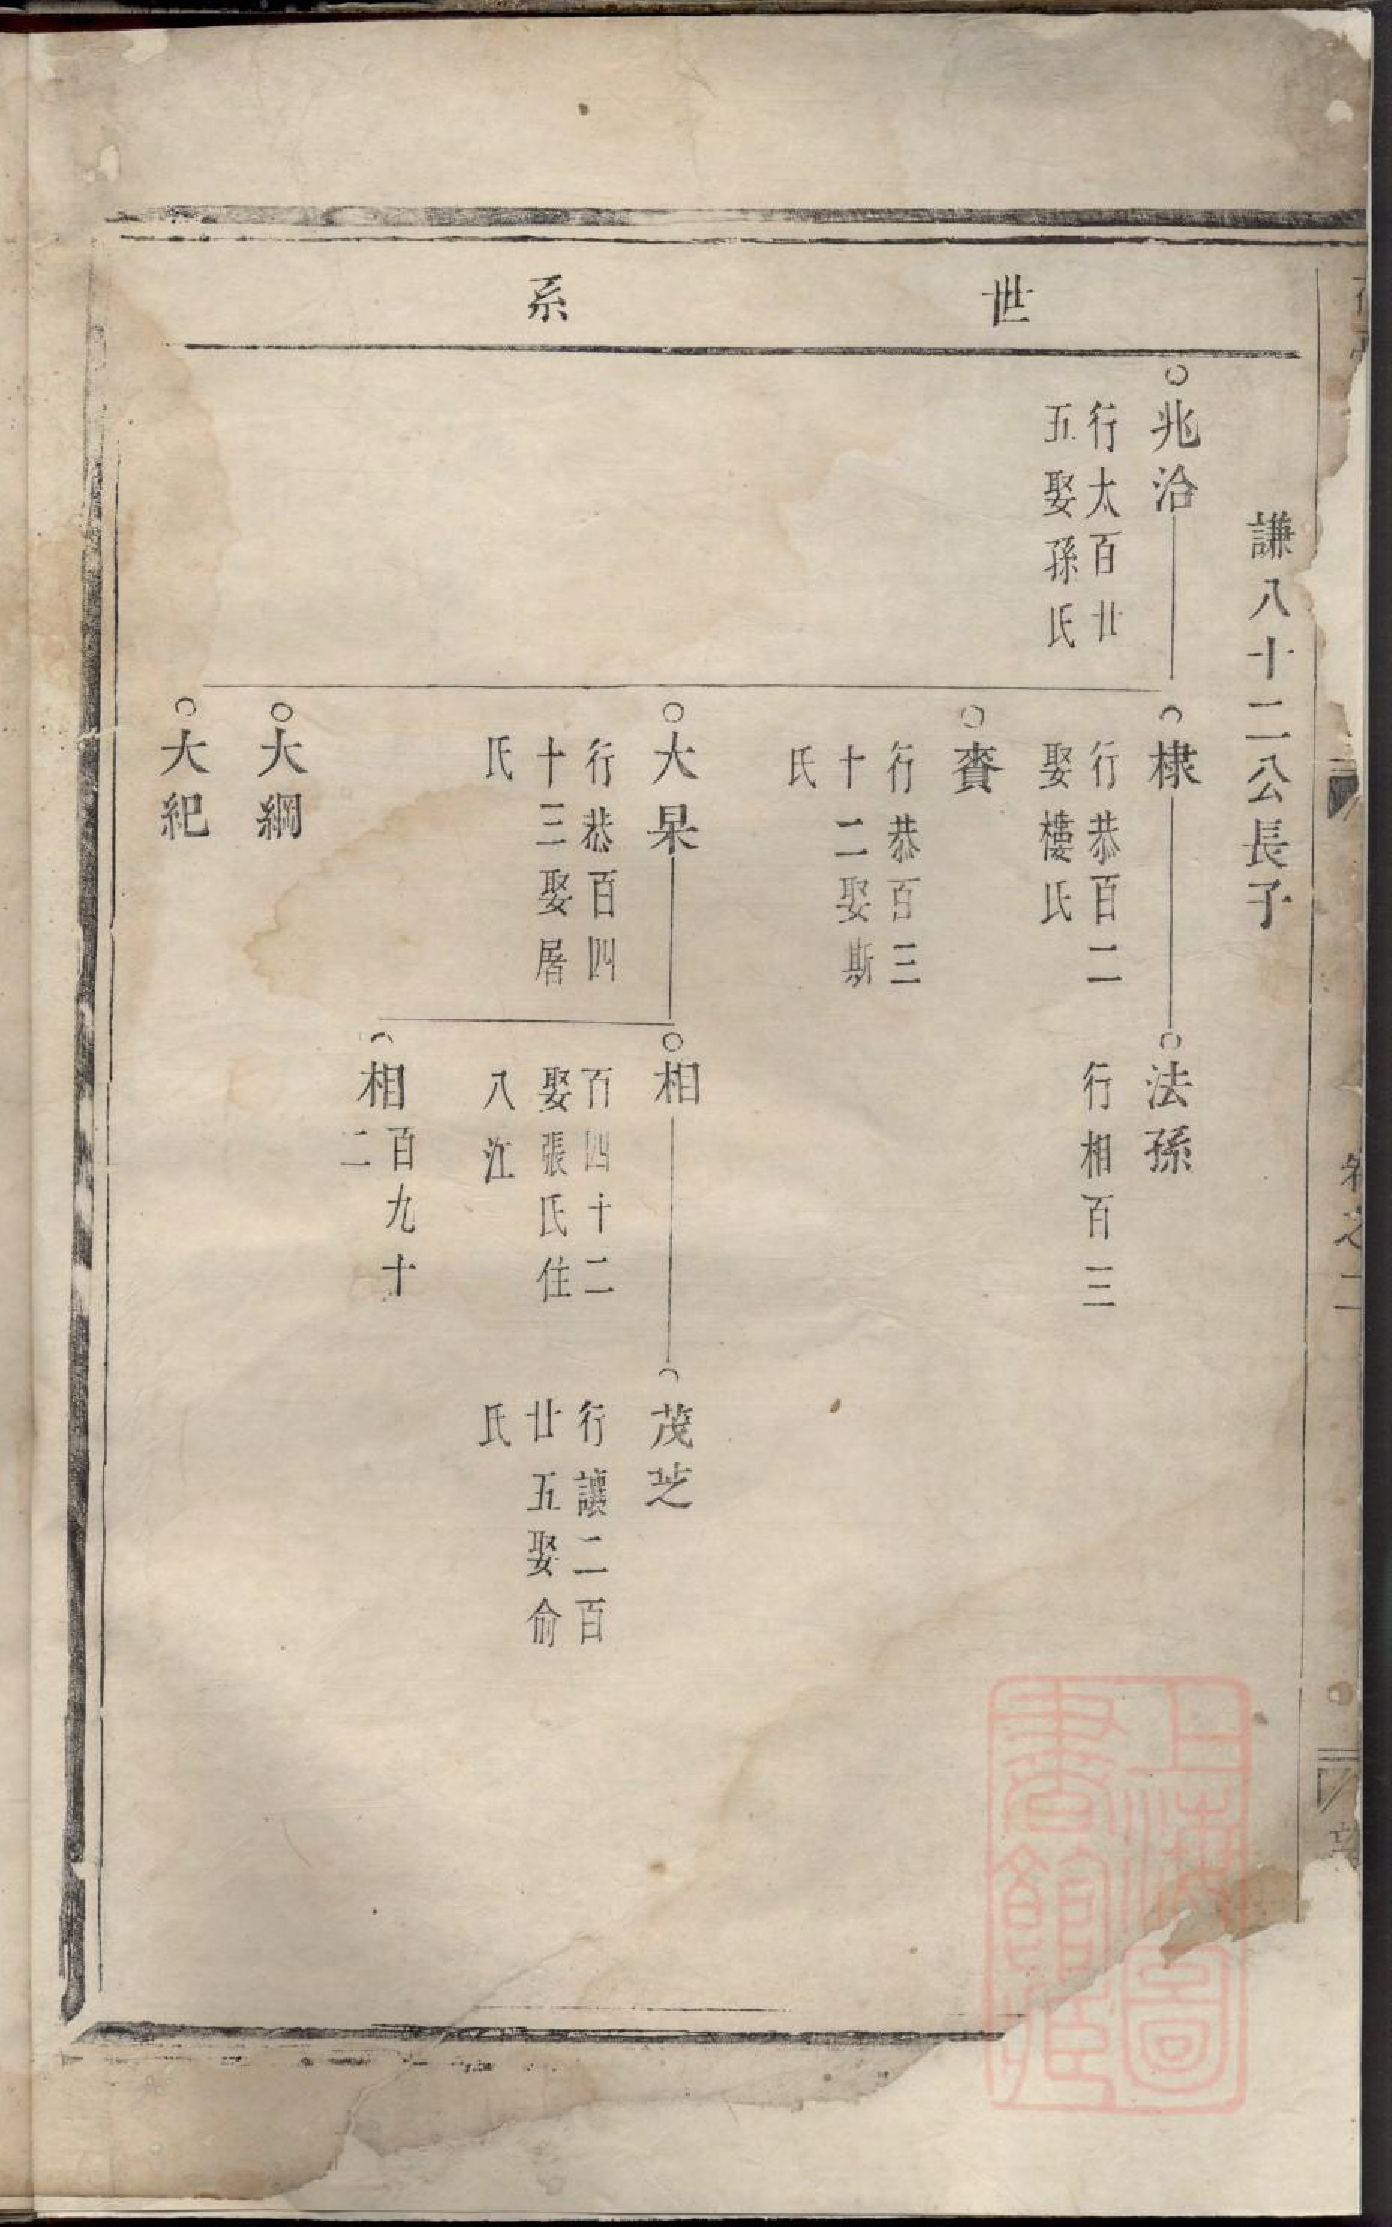 世系
謙八十二公長子
兆洽
行太百廿
五娶孫氏
棣
行恭百二
娶樓氏
法孫
行相百三
賚
行恭百三
十二娶斯
氏
大杲
行恭百四
十三娶屠
氏
相
百四十二
娶張氏住
八江
茂芝
行讓二百
廿五娶俞
氏
相
百九十
二
大綱
大紀
卷之二
上海圖
書館藏